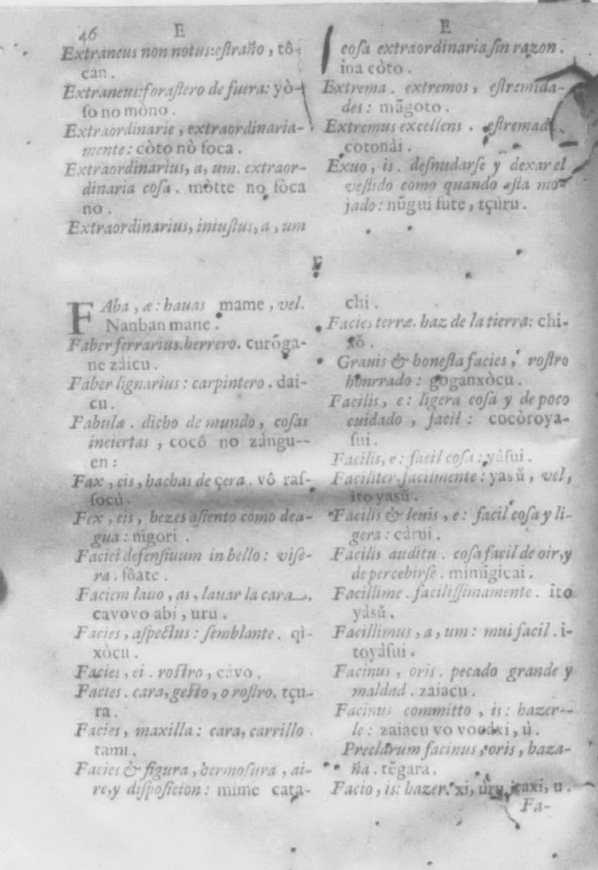 46 E E
Extraneus non notus: estraño, tô-
can.
Extraneus: forastero de fuera: yò-
so no mòno.
Extraordinarie, extraordinaria-
mente: còto nò foca.
Extraordinarius, a, um. extraor-
dinaria cosa. mòtte no fòca
no.
Extraordinarius, iniustus, a, um
cosa extraordinaria sin razon.
ina còto.
Extrema. extremos, estremida-
des: mãgoto.
Extremus excellens. estremado.
cotonài.
Exuo, is. desnudarse y dexar el
vestido como quando esta mo-
jado: nũgui sute, tçúru.
F
FAba, æ: hauas mame, vel.
Nanban mame.
Faber ferrarius. herrero. curõga-
ne záicu.
Faber lignarius: carpintero. dai-
cu.
Fabula. dicho de mundo, cosas
inciertas, cocô no zángu--
en:
Fax, cis, hachas de çera. vô raf-
socú.
Fex, cis, hezes asiento como de a-
gua: nigori.
Faciei defensiuum in bello: vise-
ra. fôate.
Faciem lauo, as, lauar la cara.
cavovo abi, uru.
Facies, aspectus: semblante. qi-
xòcu.
Facies, ei. rostro, cávo.
Facies. cara, gesto, o rostro. tçu-
ra.
Facies, maxilla: cara, carrillo.
tami.
Facies & figura, hermosura, ai-
re, y disposicion: mime cata-
chi.
Facies terræ. haz de la tierra: chi-
Grauis & honesta facies, rostro
honrrado: goganxòcu.
Facilis, e: ligera cosa y de poco
cuidado, facil: cocòroya-
sui.
Facilis, e: facil cosa: yásui.
Faciliter. facilmente: yasŭ, vel,
ito yasŭ.
Facilis & leuis, e: facil cosa y li-
gera: cárui.
Facilis auditu. cosa facil de oir, y
de percebirse. mimigicai.
Facillime. facilissimamente. ito
yásŭ.
Facillimus, a, um: mui facil. i-
toyásui.
Facinus, oris. pecado grande y
maldad. záiacu.
Facinus committo, is: hazer--
le: zaiacu vo vocaxi, ú.
Preclarum facinus, oris, haza-
ña. tẽgara.
Facio, is: hazer. xi, úru, itaxi, u.
Fa-